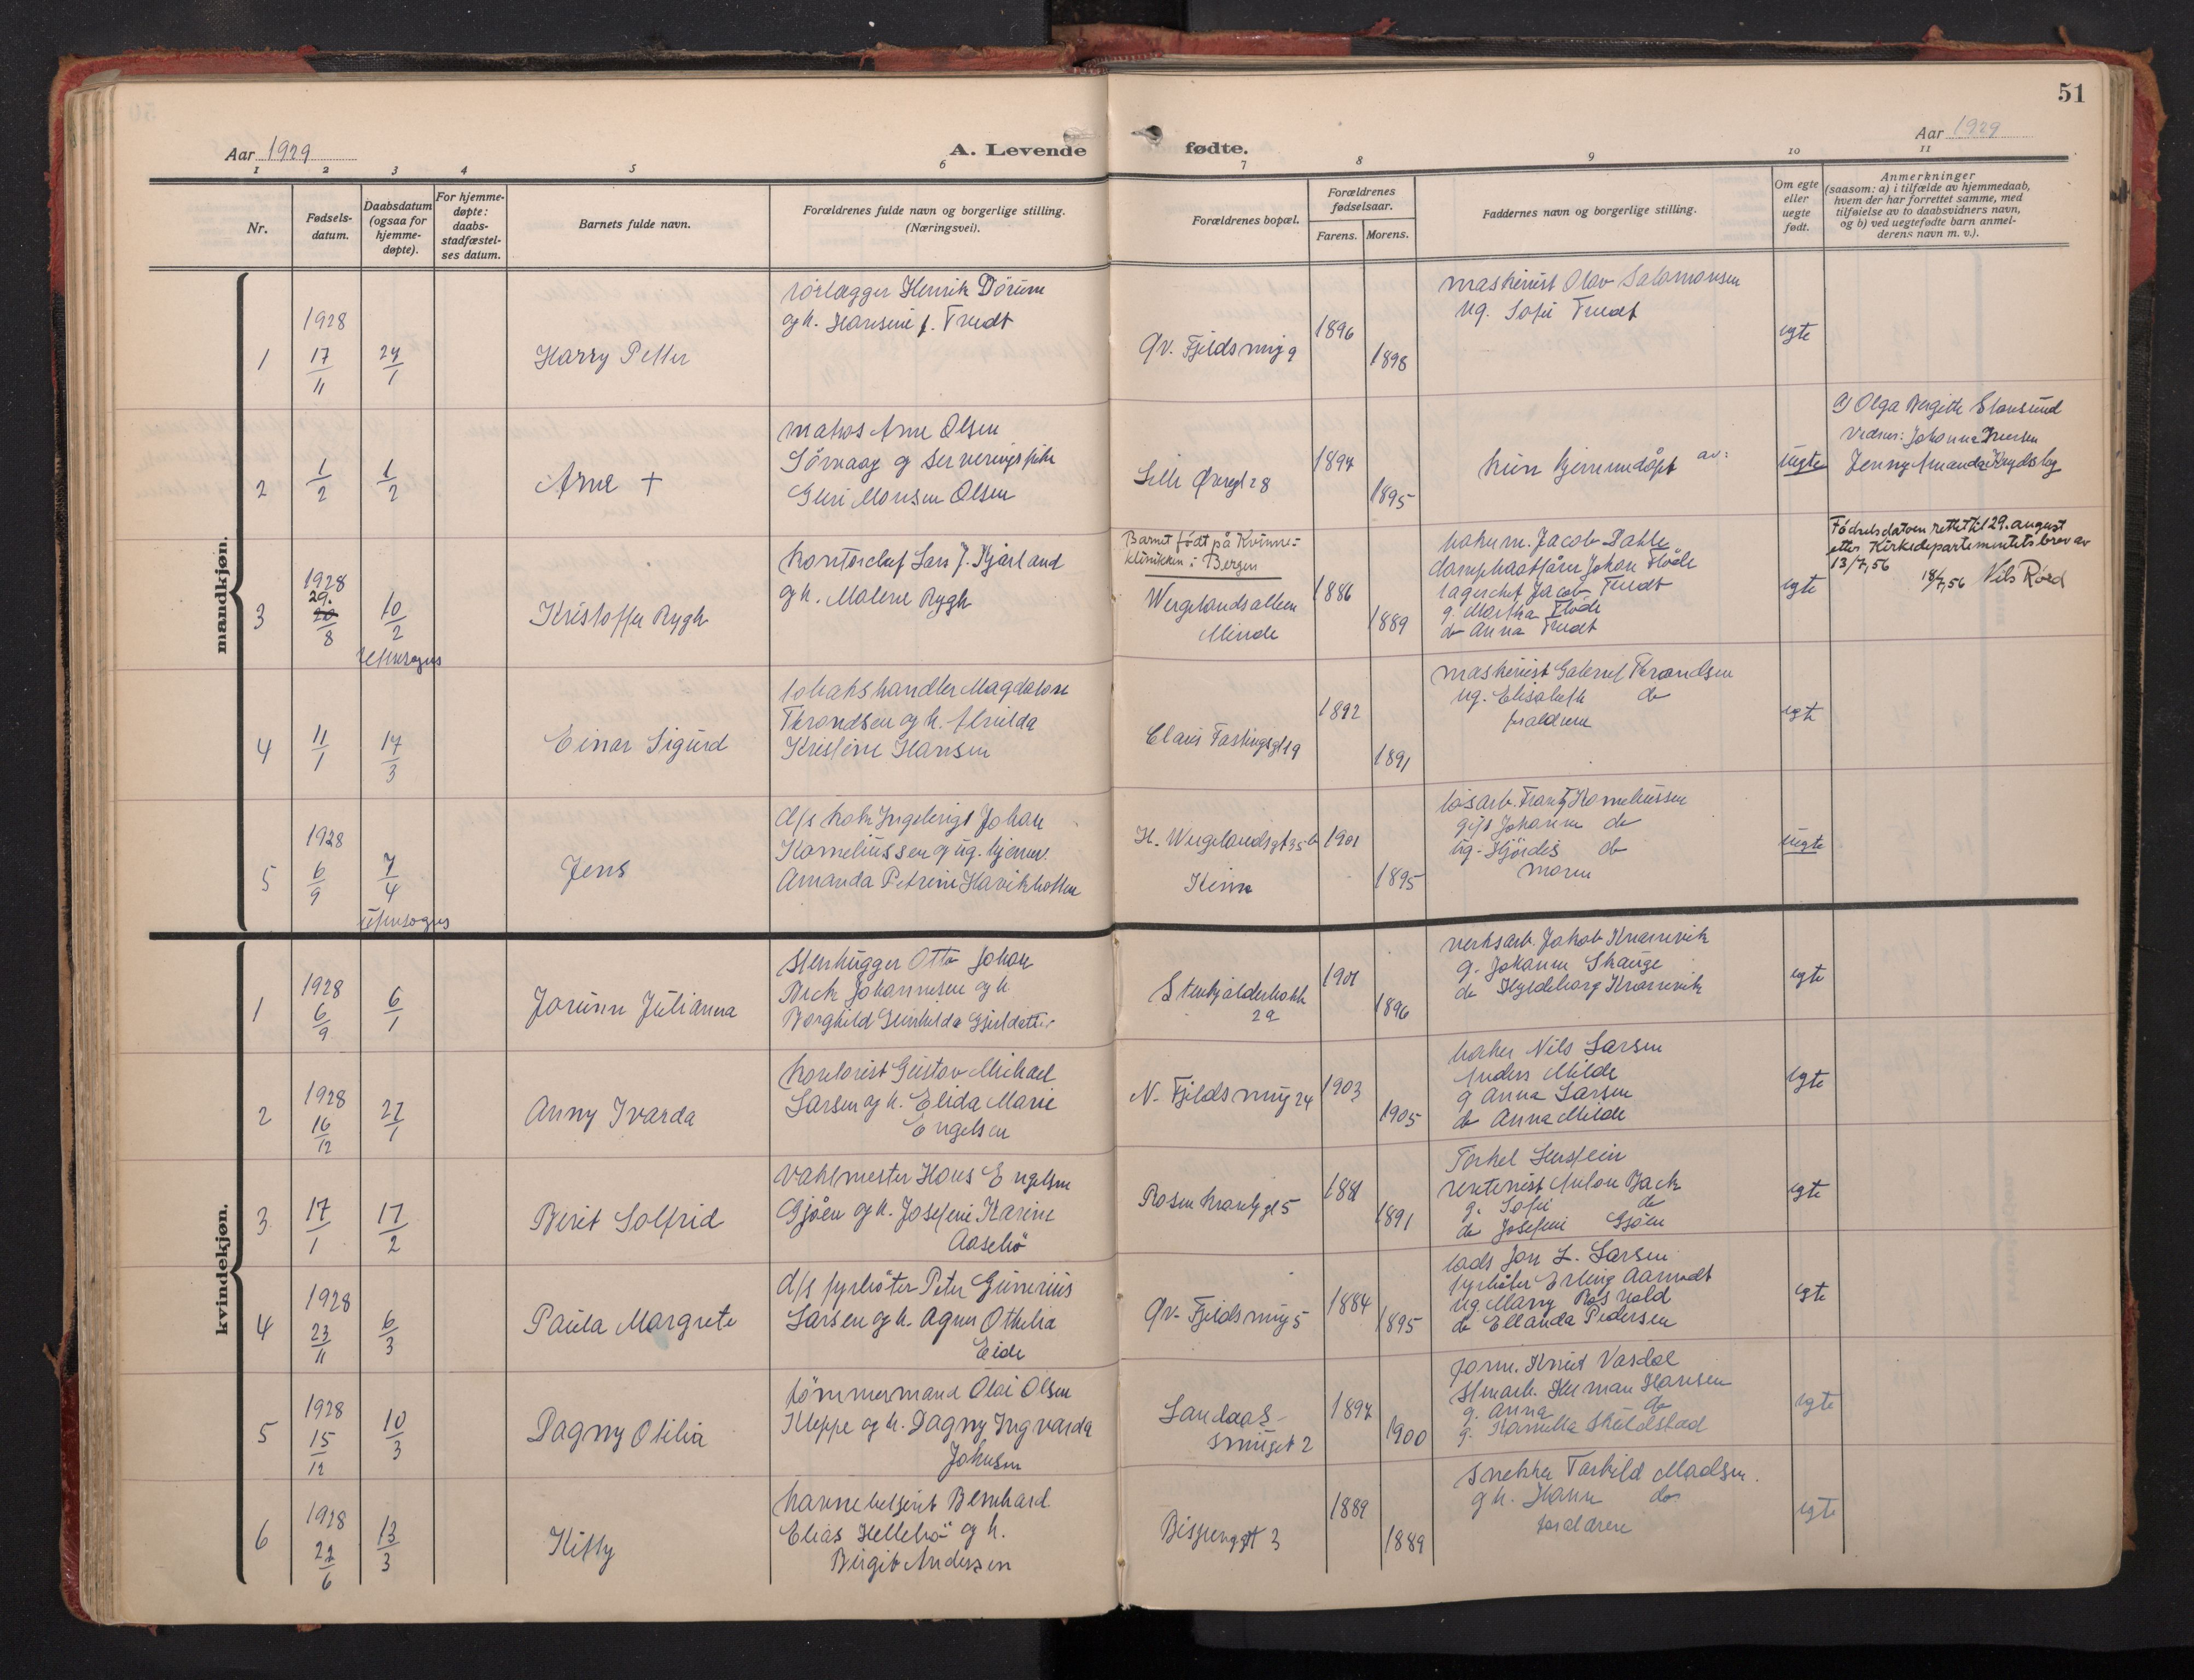 51
Aar 1929
A. Levende fødte.
Aar 1929
1 2 3 4 5 6 7 8 9 10 11
Nr.
Fødsels-
datum.
Daabsdatum
(ogsaa for
hjemme-
døpte).
For hjemme-
døpte:
daabs-
stadfæstel-
ses datum.
Barnets fulde navn.
Forældrenes fulde navn og borgerlige stilling.
(Næringsvei).
Forældrenes bopæl.
Forældrenes
fødselsaar.
Farens. Morens.
Faddernes navn og borgerlige stilling.
Om egte
eller
uegte
født.
Anmerkninger
(saasom: a) i tilfælde av hjemmedaab,
hvem der har forrettet samme, med
tilføielse av to daabsvidners navn,
og b) ved uegtefødte barn anmel-
derens navn m. v.).
mandkjøn.
1
1928
17/11
24/1
Harry Petter
rörlægger Henrik Dörum
og h. Hansine f. Tvedt
Øv. Fjeldsmug 9
1896
1898
maskinist Olav Salomonsen
ug. Sofie Tvedt
egte
2
1/2
1/2
Arne +
matros Arne Olsen
Sörvaag og
Guri Monsen Olsen
Lille Øvregt 28
1894
1895
kun hjemmedöpt av:
uegte
a) Olga Bergitte
Vidner: Johanna Iversen
Jenny Amanda
3
1928
29.
20/8
10/2
utensogns
Kristoffer Rygh
kontorchef Lars J. Kjærland
og h. Malene Rygh
Barnet født på Kvinne-
klinikken i Bergen
Wergelandsalleen
Minde
1886
1889
Jacob Dahle
Johan Flöde
lagerchef Jacob Tvedt
g. Martha Flöde
do Anna Tvedt
egte
Fødselsdatoen rettet til 29. august
etter Kirkedepartementets brev av
13/7,56
18/7,56 Nils Røed
4
11/1
17/3
Einar Sigurd
tobakshandler Magdalon
Throndsen og h. Alvilda
Kristine Hansen
Claus Fastingsgt 19
1892
1891
maskinist Gabriel Throndsen
ug. Elisabeth do
forældrene
egte
5
1928
6/9
7/4
utensogns
Jens
d/s kok Ingebrigt Johan
Korneliussen og ug. hjemmev.
Amanda Petrine
H. Wergelandsgt 35 b
Kinn
1901
1895
lösarb. Frantz Korneliussen
gift Johanne do
ug. Hjördis do
moren
uegte
kvindekjøn.
1
1928
6/9
6/1
Jorunn Julianna
Stenhugger Otto Johan
Beck Johannesen og h.
Borghild Gunhilda
Stenkjælderbakk
29
1901
1896
verksarb. Jakob Knarrevik
g. Johanne Skauge
do Hyldeborg Knarrevik
egte
2
1928
16/12
27/1
Anny Ivarda
kontorist Gustav Michael
Larsen og h. Elida Marie
Engelsen
N. Fjeldsmug 24
1903
1905
Nils Larsen
Anders Milde
g Anna Larsen
do Anna Milde
egte
3
17/1
17/2
Berit Solfrid
Vaktmester Hans Engelsen
Gjöen og h. Josefine Karine
Aasebö
Rosenkrantzgt 5
1881
1891
Torkel
Anton Bach
g. Sofie do
do Josefine Gjöen
egte
4
1928
23/11
6/3
Paula Margrete
d/s fyrböter Peter Gunerius
Larsen og h. Agnes Othelia
Eide
Øv. Fjeldsmug 5
1884
1895
lods Jon L. Larsen
fyrböter Erling Aamodt
ug. Marry
do Ellanda Pedersen
egte
5
1928
15/12
10/3
Dagny Otilia
tömmermand Olai Olsen
Kleppe og h. Dagny Ingvarda
Johnsen
Landaas-
smuget 2
1897
1900
form. Knut Vasdal
Herman Hansen
g. Anna do
g. Kamilla
egte
6
1928
22/6
13/3
Kitty
havnebetjent Bernhard
Elias Hellebö og h.
Birgit Anderssen
Bispengt 3
1889
1889
Snekker Torkild Madsen.
g h. Hanna do.
forældrene
egte